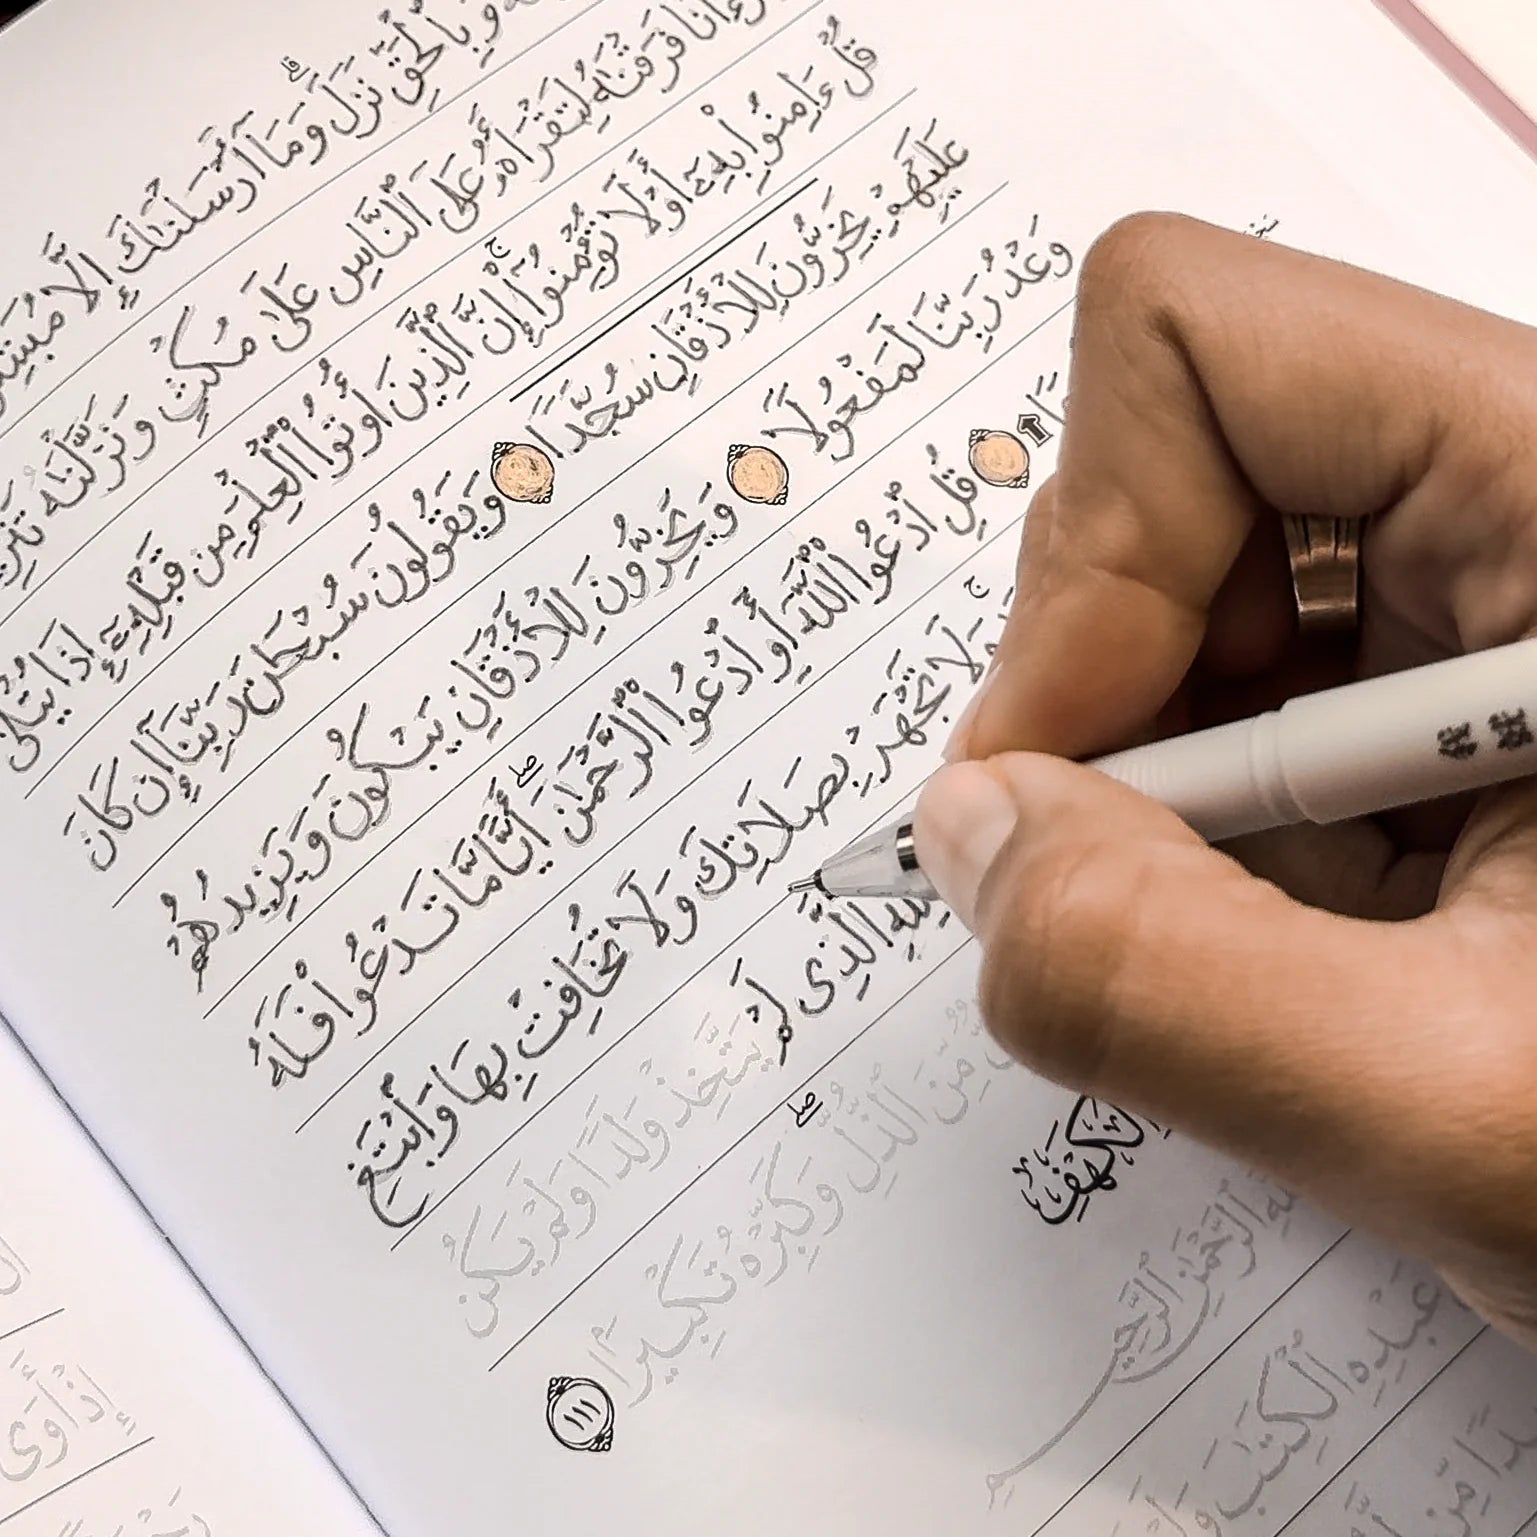 وَبِٱلْحَقِّ نَزَلَ ۗ وَمَآ أَرْسَلْنَٰكَ إِلَّا
فَرَقْنَٰهُ لِتَقْرَأَهُۥ عَلَى ٱلنَّاسِ عَلَىٰ مُكْثٍ وَنَزَّلْنَٰهُ
قُلْ ءَامِنُوا۟ بِهِۦٓ أَوْ لَا تُؤْمِنُوٓا۟ ۚ إِنَّ ٱلَّذِينَ أُوتُوا۟ ٱلْعِلْمَ مِن قَبْلِهِۦٓ إِذَا يُتْلَىٰ
عَلَيْهِمْ يَخِرُّونَ لِلْأَذْقَانِ سُجَّدًا وَيَقُولُونَ سُبْحَٰنَ رَبِّنَآ إِن كَانَ
وَعْدُ رَبِّنَا لَمَفْعُولًا وَيَخِرُّونَ لِلْأَذْقَانِ يَبْكُونَ وَيَزِيدُهُمْ
قُلِ ٱدْعُوا۟ ٱللَّهَ أَوِ ٱدْعُوا۟ ٱلرَّحْمَٰنَ ۖ أَيًّا مَّا تَدْعُوا۟ فَلَهُ
ۚ وَلَا تَجْهَرْ بِصَلَاتِكَ وَلَا تُخَافِتْ بِهَا وَٱبْتَغِ
ٱلَّذِى لَمْ يَتَّخِذْ وَلَدًا وَلَمْ يَكُن
مِّنَ ٱلذُّلِّ ۖ وَكَبِّرْهُ تَكْبِيرًۢا ١١١
ٱلْكَهْفِ
ٱلرَّحْمَٰنِ ٱلرَّحِيمِ
عَبْدِهِ ٱلْكِتَٰبَ وَلَمْ
إِذْ أَوَى